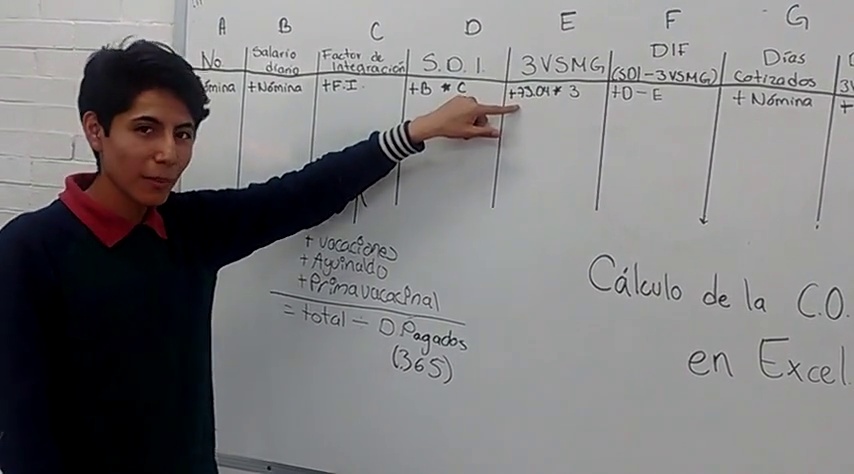 A B C D E F G
No
Salario
diario
Factor de
Integración
S.D.I.
3VSMG
DIF
(SDI-3VSMG)
Días
Cotizados
+Nómina
+F.I.
+B * C
+73.04* 3
+D-E
+ Nómina
+ vacaciones
+ Aguinaldo
+Prima vacacPnal
= total ÷ D.Pagados
(365)
Cálculo de la C.O.
en Excel.